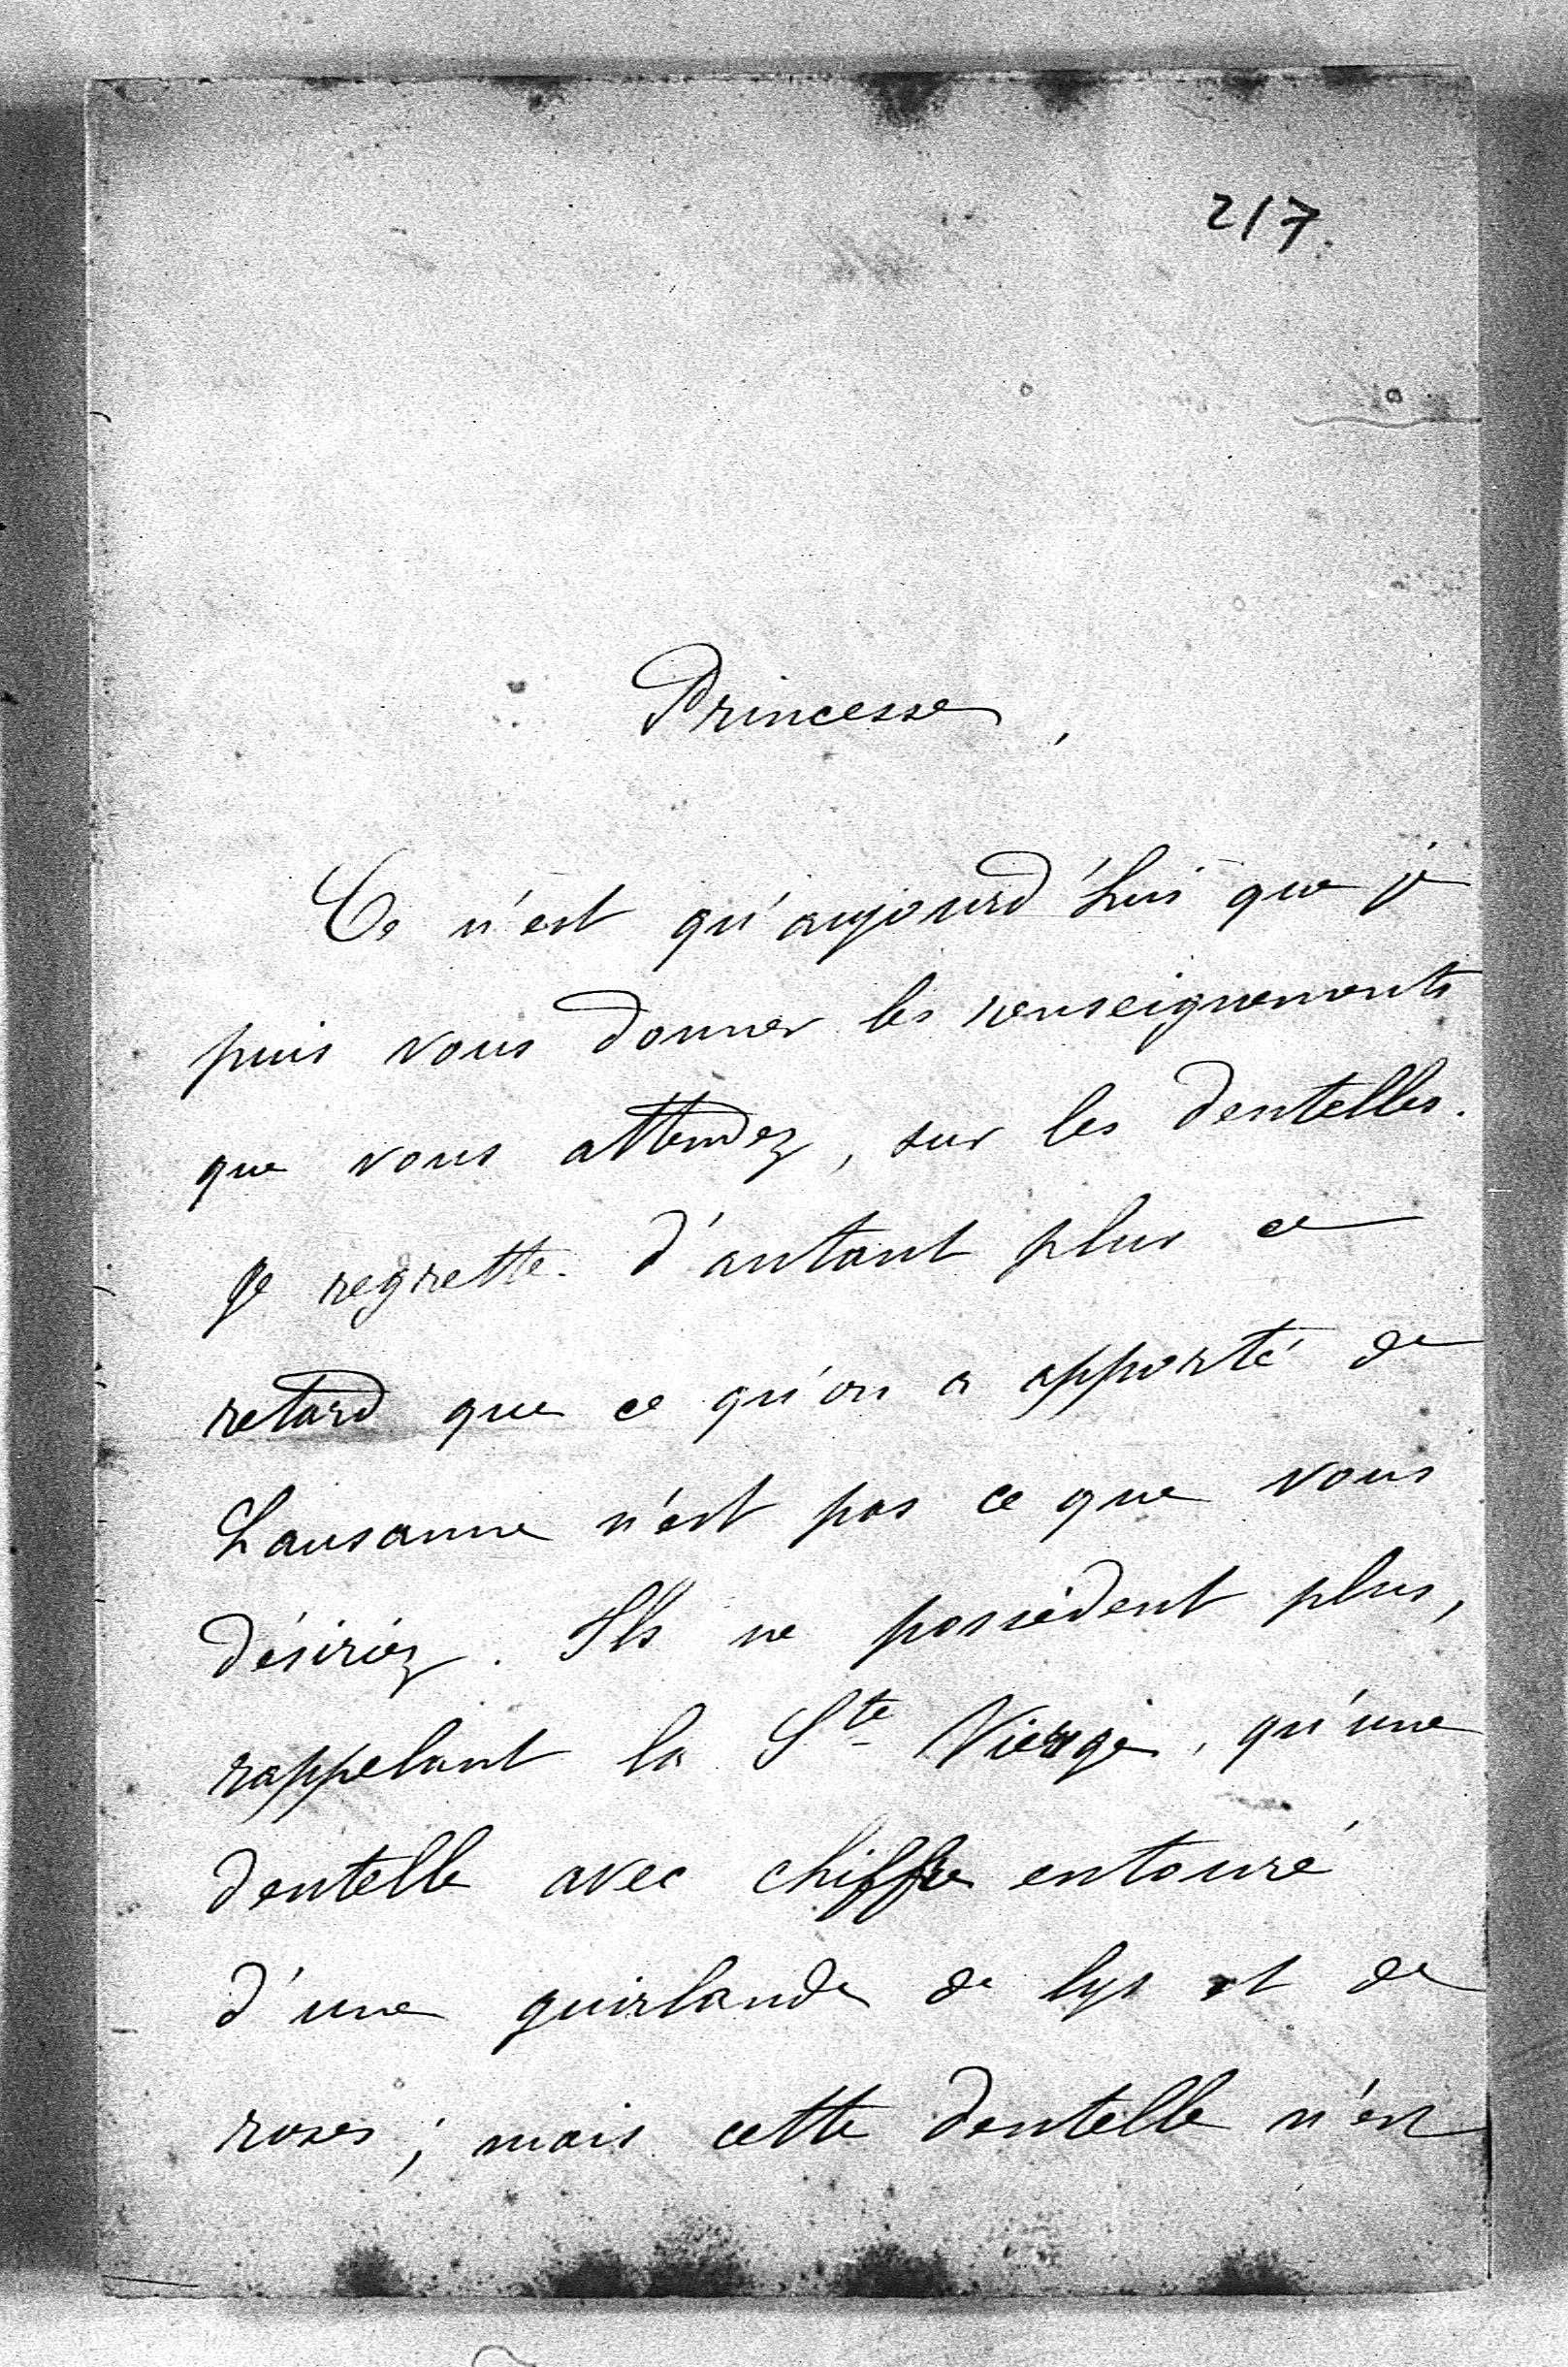 217.
Princesse,
Ce n'est qu'aujourd'hui que je
puis vous donner les renseignements
que vous attendez, sur les dentelles.
Je regrette d'autant plus ce
retard que ce qu'on a apporté de
Lausanne n'est pas ce que vous
désiriez. Ils ne possèdent plus,
rappelant la Ste Vierge, qu'une
dentelle avec chiffre entouré
d'une guirlande de lys et de
roses; mais cette dentelle n'est